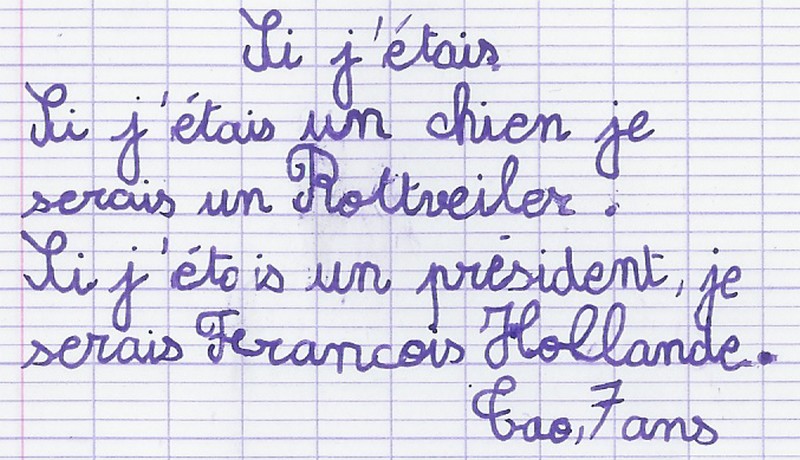 Si j'étais
Si j'étais un chien je
serais un Rottveiler.
Si j'étais un président, je
serais Francois Hollande.
Tao, 7 ans